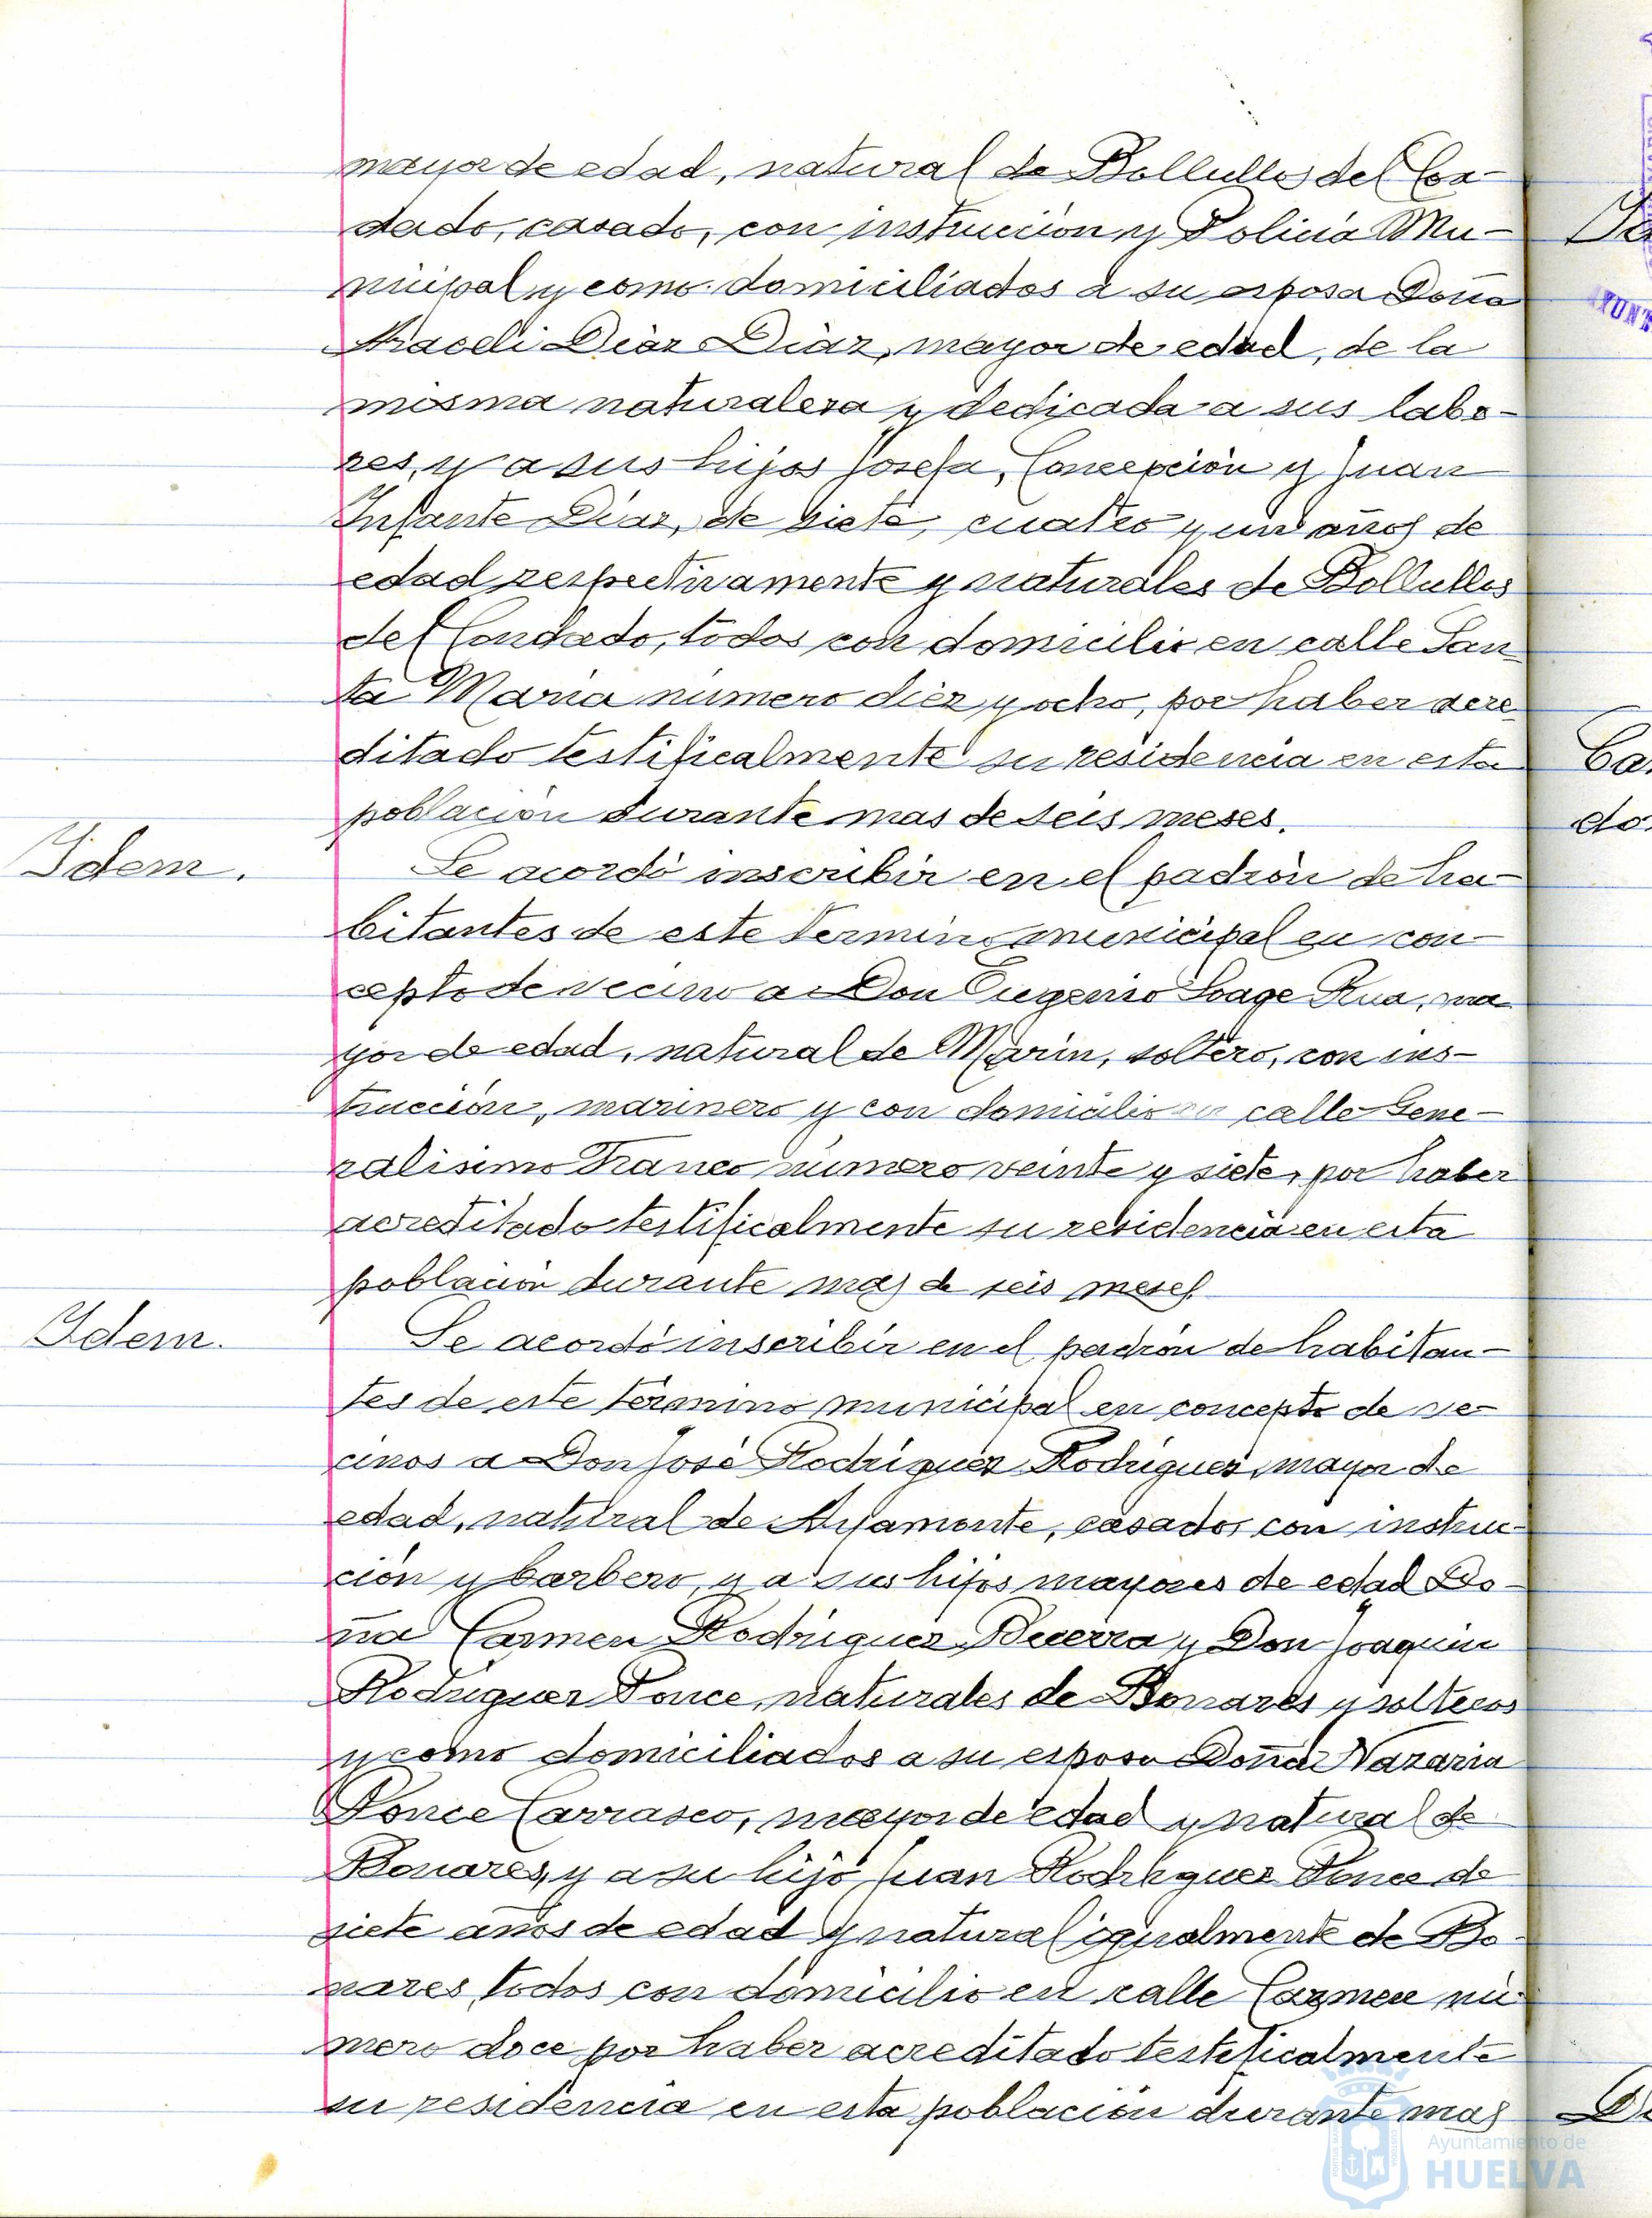 mayor de edad, natural de Bollullos del Con-
dado, casado, con instrucción y Policia Mu-
nicipal y como domiciliados a su esposa Doña
Araceli Diaz Diaz, mayor de edad, de la
misma naturaleza y dedicada a sus labo-
res, y a sus hijos Josefa, Concepción y Juan
Infante Diaz, de siete, cuatro y un años de
edad respectivamente y naturales de Bollullos
del Condado, todos con domicilio en calle San
ta Maria número diez y ocho, por haber acre
ditado testificalmente su residencia en esta
población durante mas de seis meses.
Idem.
Se acordó inscribir en el padrón de ha-
bitantes de este termino municipal en con-
cepto de vecino a Don Eugenio Soage Rua, ma
yor de edad, natural de Marin, soltero, con ins-
trucción, marinero y con domicilio en calle Gene-
ralisimo Franco número veinte y siete, por haber
acreditado testificalmente su residencia en esta
población durante mas de seis meses.
Idem.
Se acordó inscribir en el padrón de habitan-
tes de este término municipal en concepto de ve-
cinos a Don José Rodriguez Rodriguez, mayor de
edad, natural de Ayamonte, casado, con instruc-
ción y barbero, y a sus hijos mayores de edad Do-
ña Carmen Rodriguez Becerra y Don Joaquin
Rodriguez Ponce, naturales de Bonares y solteros
y como domiciliados a su esposa Doña Nazaria
Ponce Carrasco, mayor de edad y natural de
Bonares, y a su hijo Juan Rodriguez Ponce de
siete años de edad y natural igualmente de Bo-
nares, todos con domicilio en calle Carmen nú
mero doce por haber acreditado testificalmente
su residencia en esta población durante mas
Ayuntamiento de
HUELVA